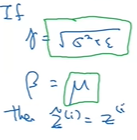 If
γ = √(σ² + ε)
β = μ
then z̃⁽ⁱ⁾ = z⁽ⁱ